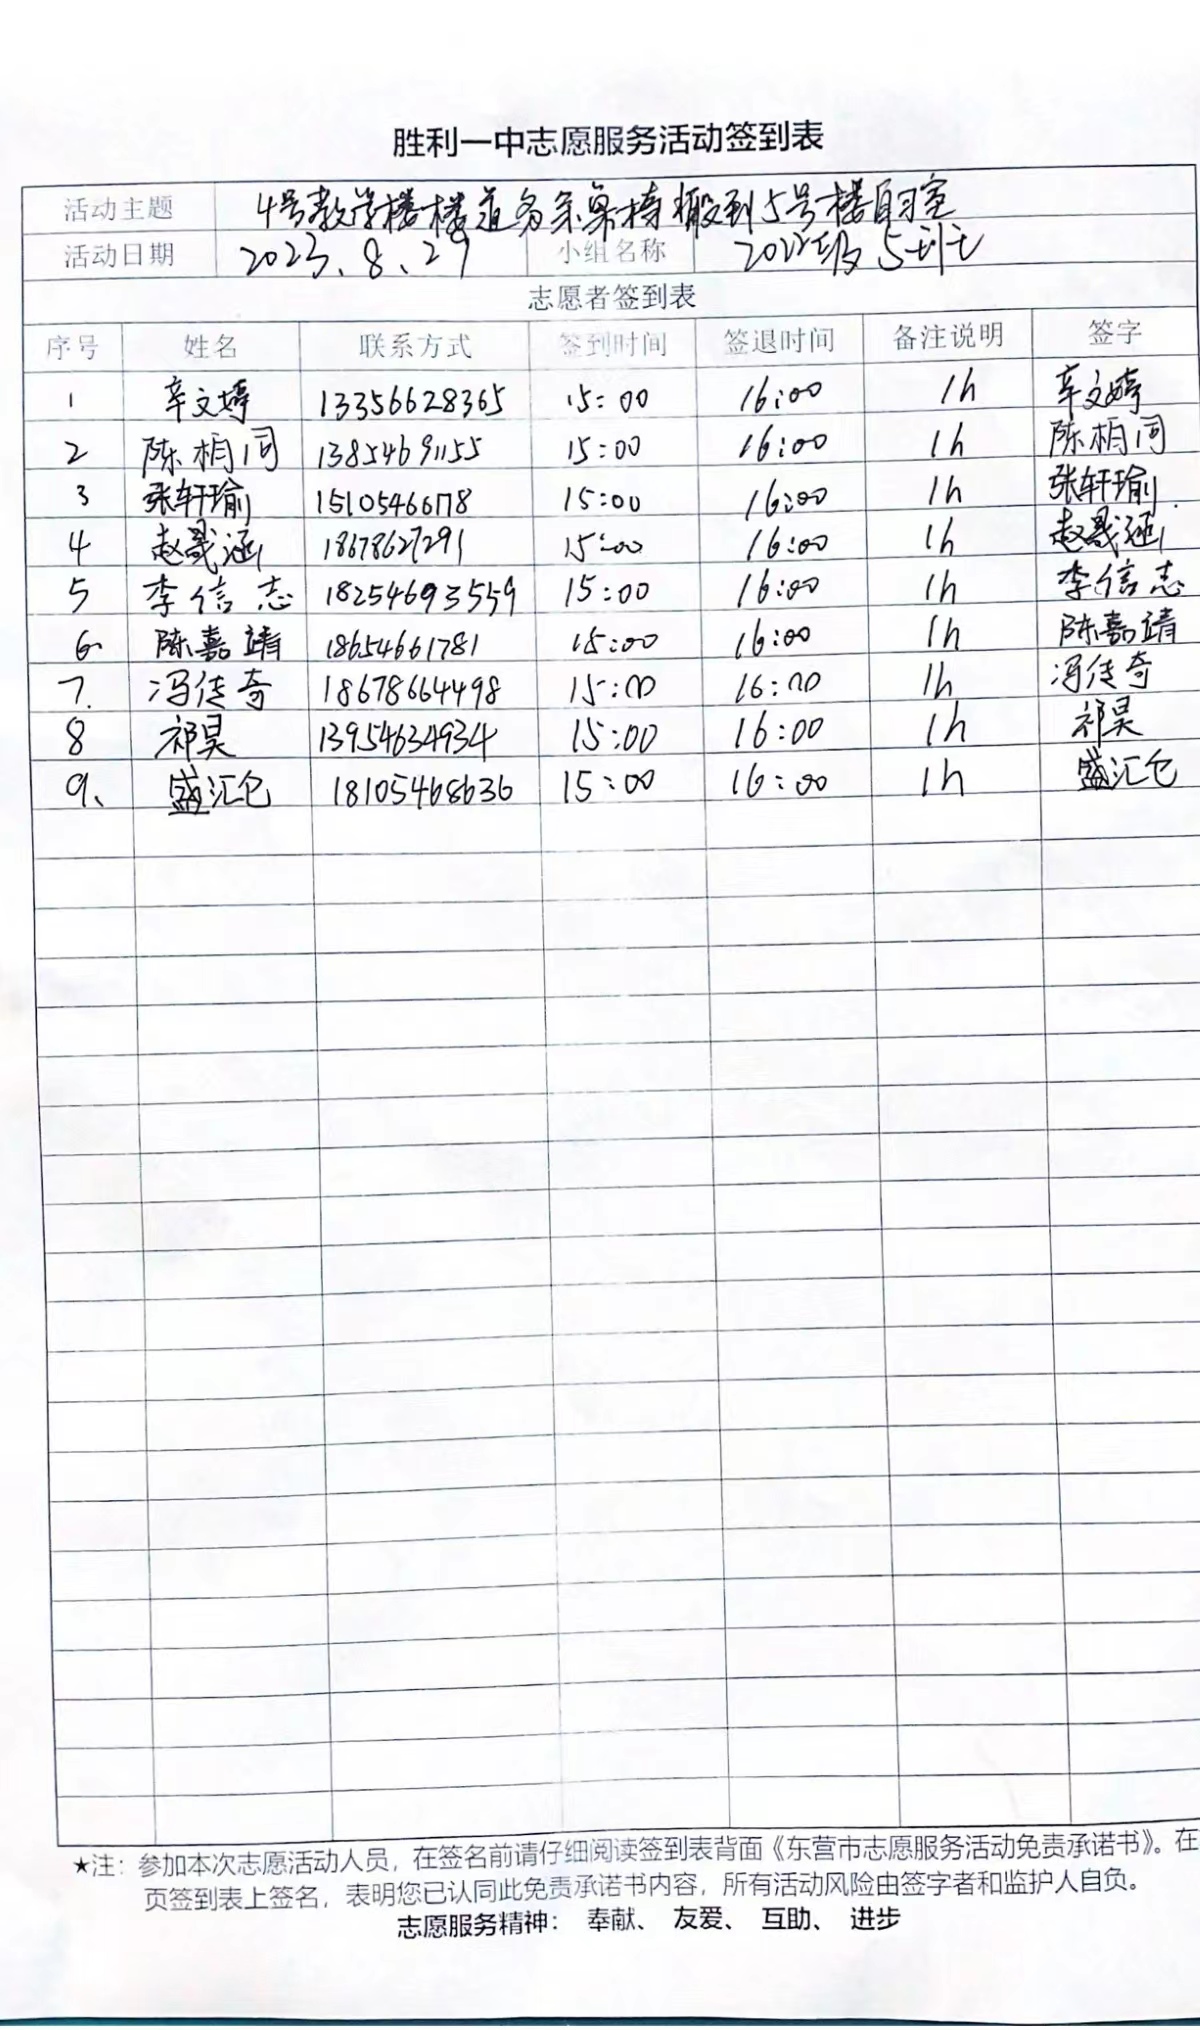 胜利一中志愿服务活动签到表
活动主题 4号教学楼楼道多余桌椅搬到5号楼自习室
活动日期 2023.8.29 小组名称 2022级5班
志愿者签到表
序号 姓名 联系方式 签到时间 签退时间 备注说明 签字
1 辛文婷 13356628365 15:00 16:00 1h 辛文婷
2 陈相同 13854691155 15:00 16:00 1h 陈相同
3 张轩瑜 15105466178 15:00 16:00 1h 张轩瑜
4 赵晟涵 18678627291 15:00 16:00 1h 赵晟涵
5 李信志 18254693559 15:00 16:00 1h 李信志
6. 陈嘉靖 18654661781 15:00 16:00 1h 陈嘉靖
7. 冯传奇 18678664498 15:00 16:00 1h 冯传奇
8 祁昊 13954634934 15:00 16:00 1h 祁昊
9、 盛汇仓 18105468636 15:00 16:00 1h 盛汇仓
★注：参加本次志愿活动人员，在签名前请仔细阅读签到表背面《东营市志愿服务活动免责承诺书》。在
页签到表上签名，表明您已认同此免责承诺书内容，所有活动风险由签字者和监护人自负。
志愿服务精神： 奉献、 友爱、 互助、 进步